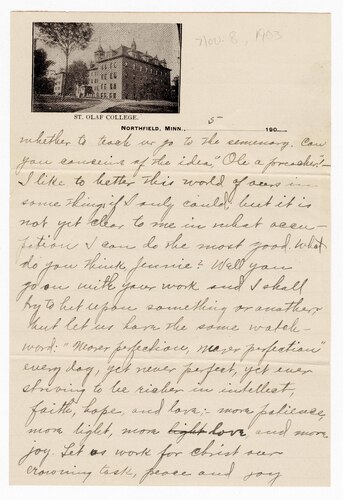 Nov. 8, 1903
ST. OLAF COLLEGE.
NORTHFIELD, MINN., 5 190
whether to teach or go to the seminary. Can
you conceive of the idea, "Ole a preacher!"
I like to better this world of ours in
some thing if I only could, but it is
not yet clear to me in what occu-
pation I can do the most good. What
do you think Jennie? Well you
go on with your work and I shall
try to hit upon something or another
but let us have the same watch-
word: "Nearer perfection, nearer perfection"
every day, yet never perfect, yet ever
striving to be richer in intellect,
faith, hope, and love:- more patience,
more light, more light love, and more
joy. Let us work for Christ our
crowning task, peace and joy